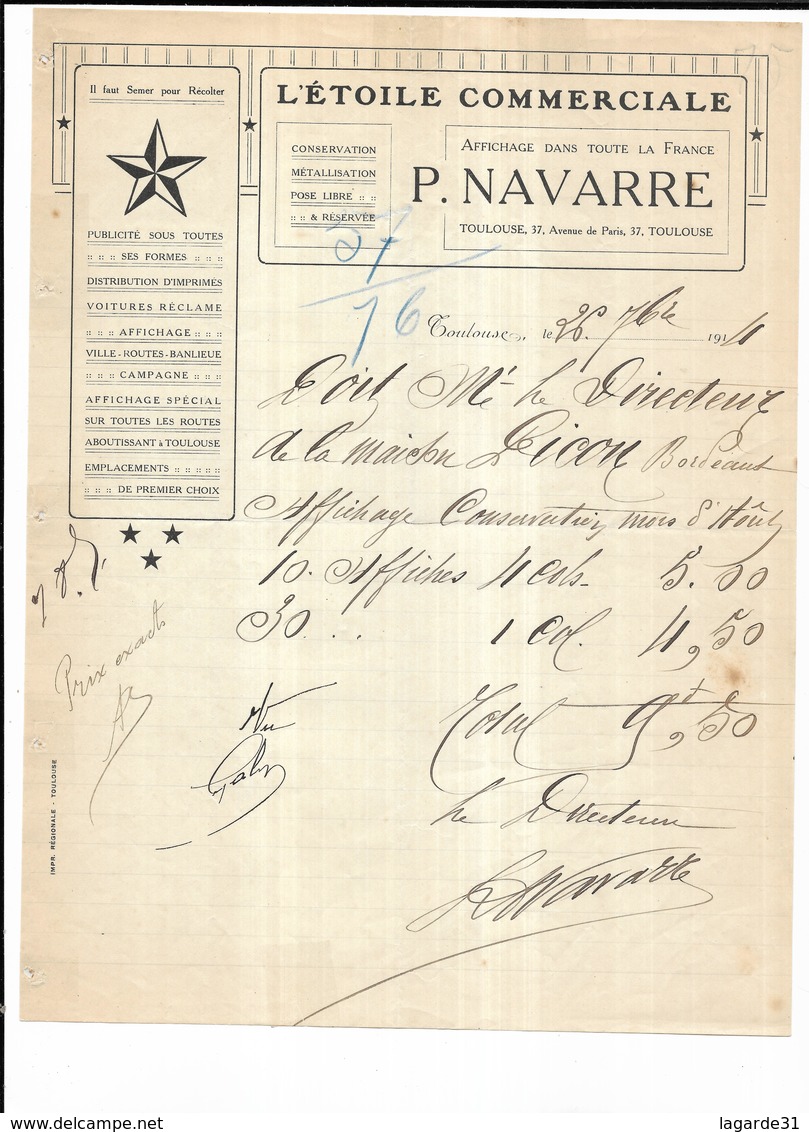 Il faut Semer pour Récolter
PUBLICITÉ SOUS TOUTES
:: :: :: SES FORMES :: :: ::
DISTRIBUTION D'IMPRIMÉS
VOITURES RÉCLAME
:: :: :: AFFICHAGE :: :: ::
VILLE - ROUTES - BANLIEUE
:: :: :: CAMPAGNE :: :: ::
AFFICHAGE SPÉCIAL
SUR TOUTES LES ROUTES
ABOUTISSANT à TOULOUSE
EMPLACEMENTS :: :: :: ::
:: :: :: DE PREMIER CHOIX
L'ÉTOILE COMMERCIALE
CONSERVATION
MÉTALLISATION
POSE LIBRE :: ::
:: :: & RÉSERVÉE
AFFICHAGE DANS TOUTE LA FRANCE
P. NAVARRE
TOULOUSE, 37, Avenue de Paris, 37, TOULOUSE
57
76
Toulouse, le 26 7bre 1911
Doit Mr le Directeur
de la maison Picon Bordeaux
Affichage Conservation mois d'Août
10. Affiches 4 cols 5.00
30 ... 1 Col. 4,50
Total 9f,50
le Directeur
P Navarre
Prix exacts
Vu
IMPR. RÉGIONALE - TOULOUSE
lagarde31